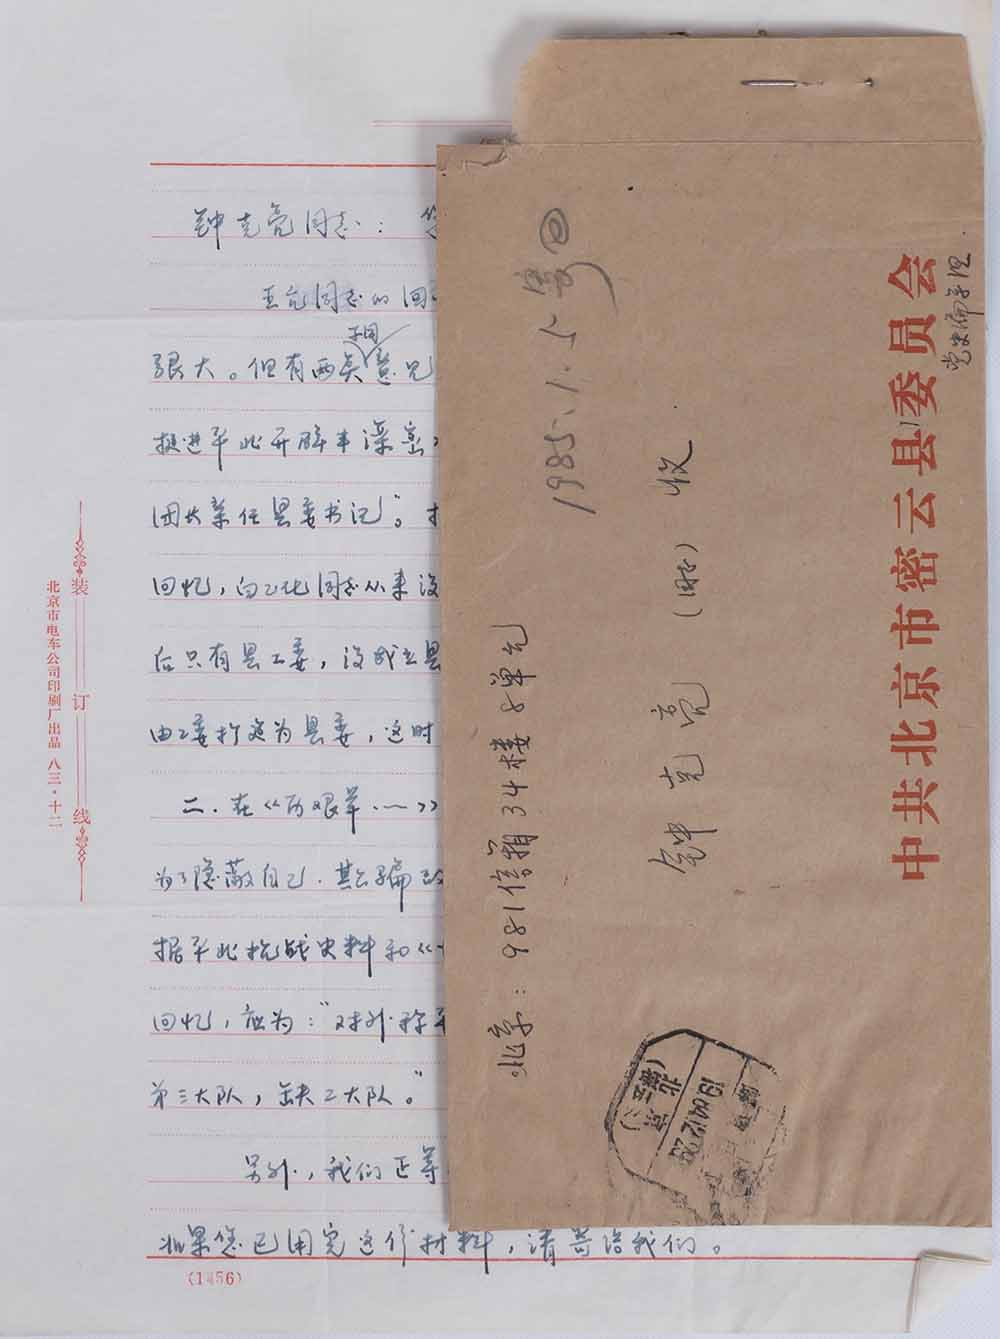 钟克亮同志：
王亢同志的回
很大。但有两类不同意见
挺进平北开辟丰滦密
团长兼任县委书记”。
回忆，白乙化同志从来没
后只有县工委，没成立县
由工委扩变为县委，这时
二．在《历艰辛·一》
为了隐蔽自己．
据平北抗战史料和《
回忆，应为：“对外称
第三大队，缺二大队。”
另外，我们正等
如果您已用完这份材料，请寄给我们。
(1456)
装订线
北京市电车公司印刷厂出品 八三·十二
中共北京市密云县委员会
党史编
1985.1.5寄回
北京：981信箱34楼8单元
钟克亮（同志）收
北京
1984.12.29